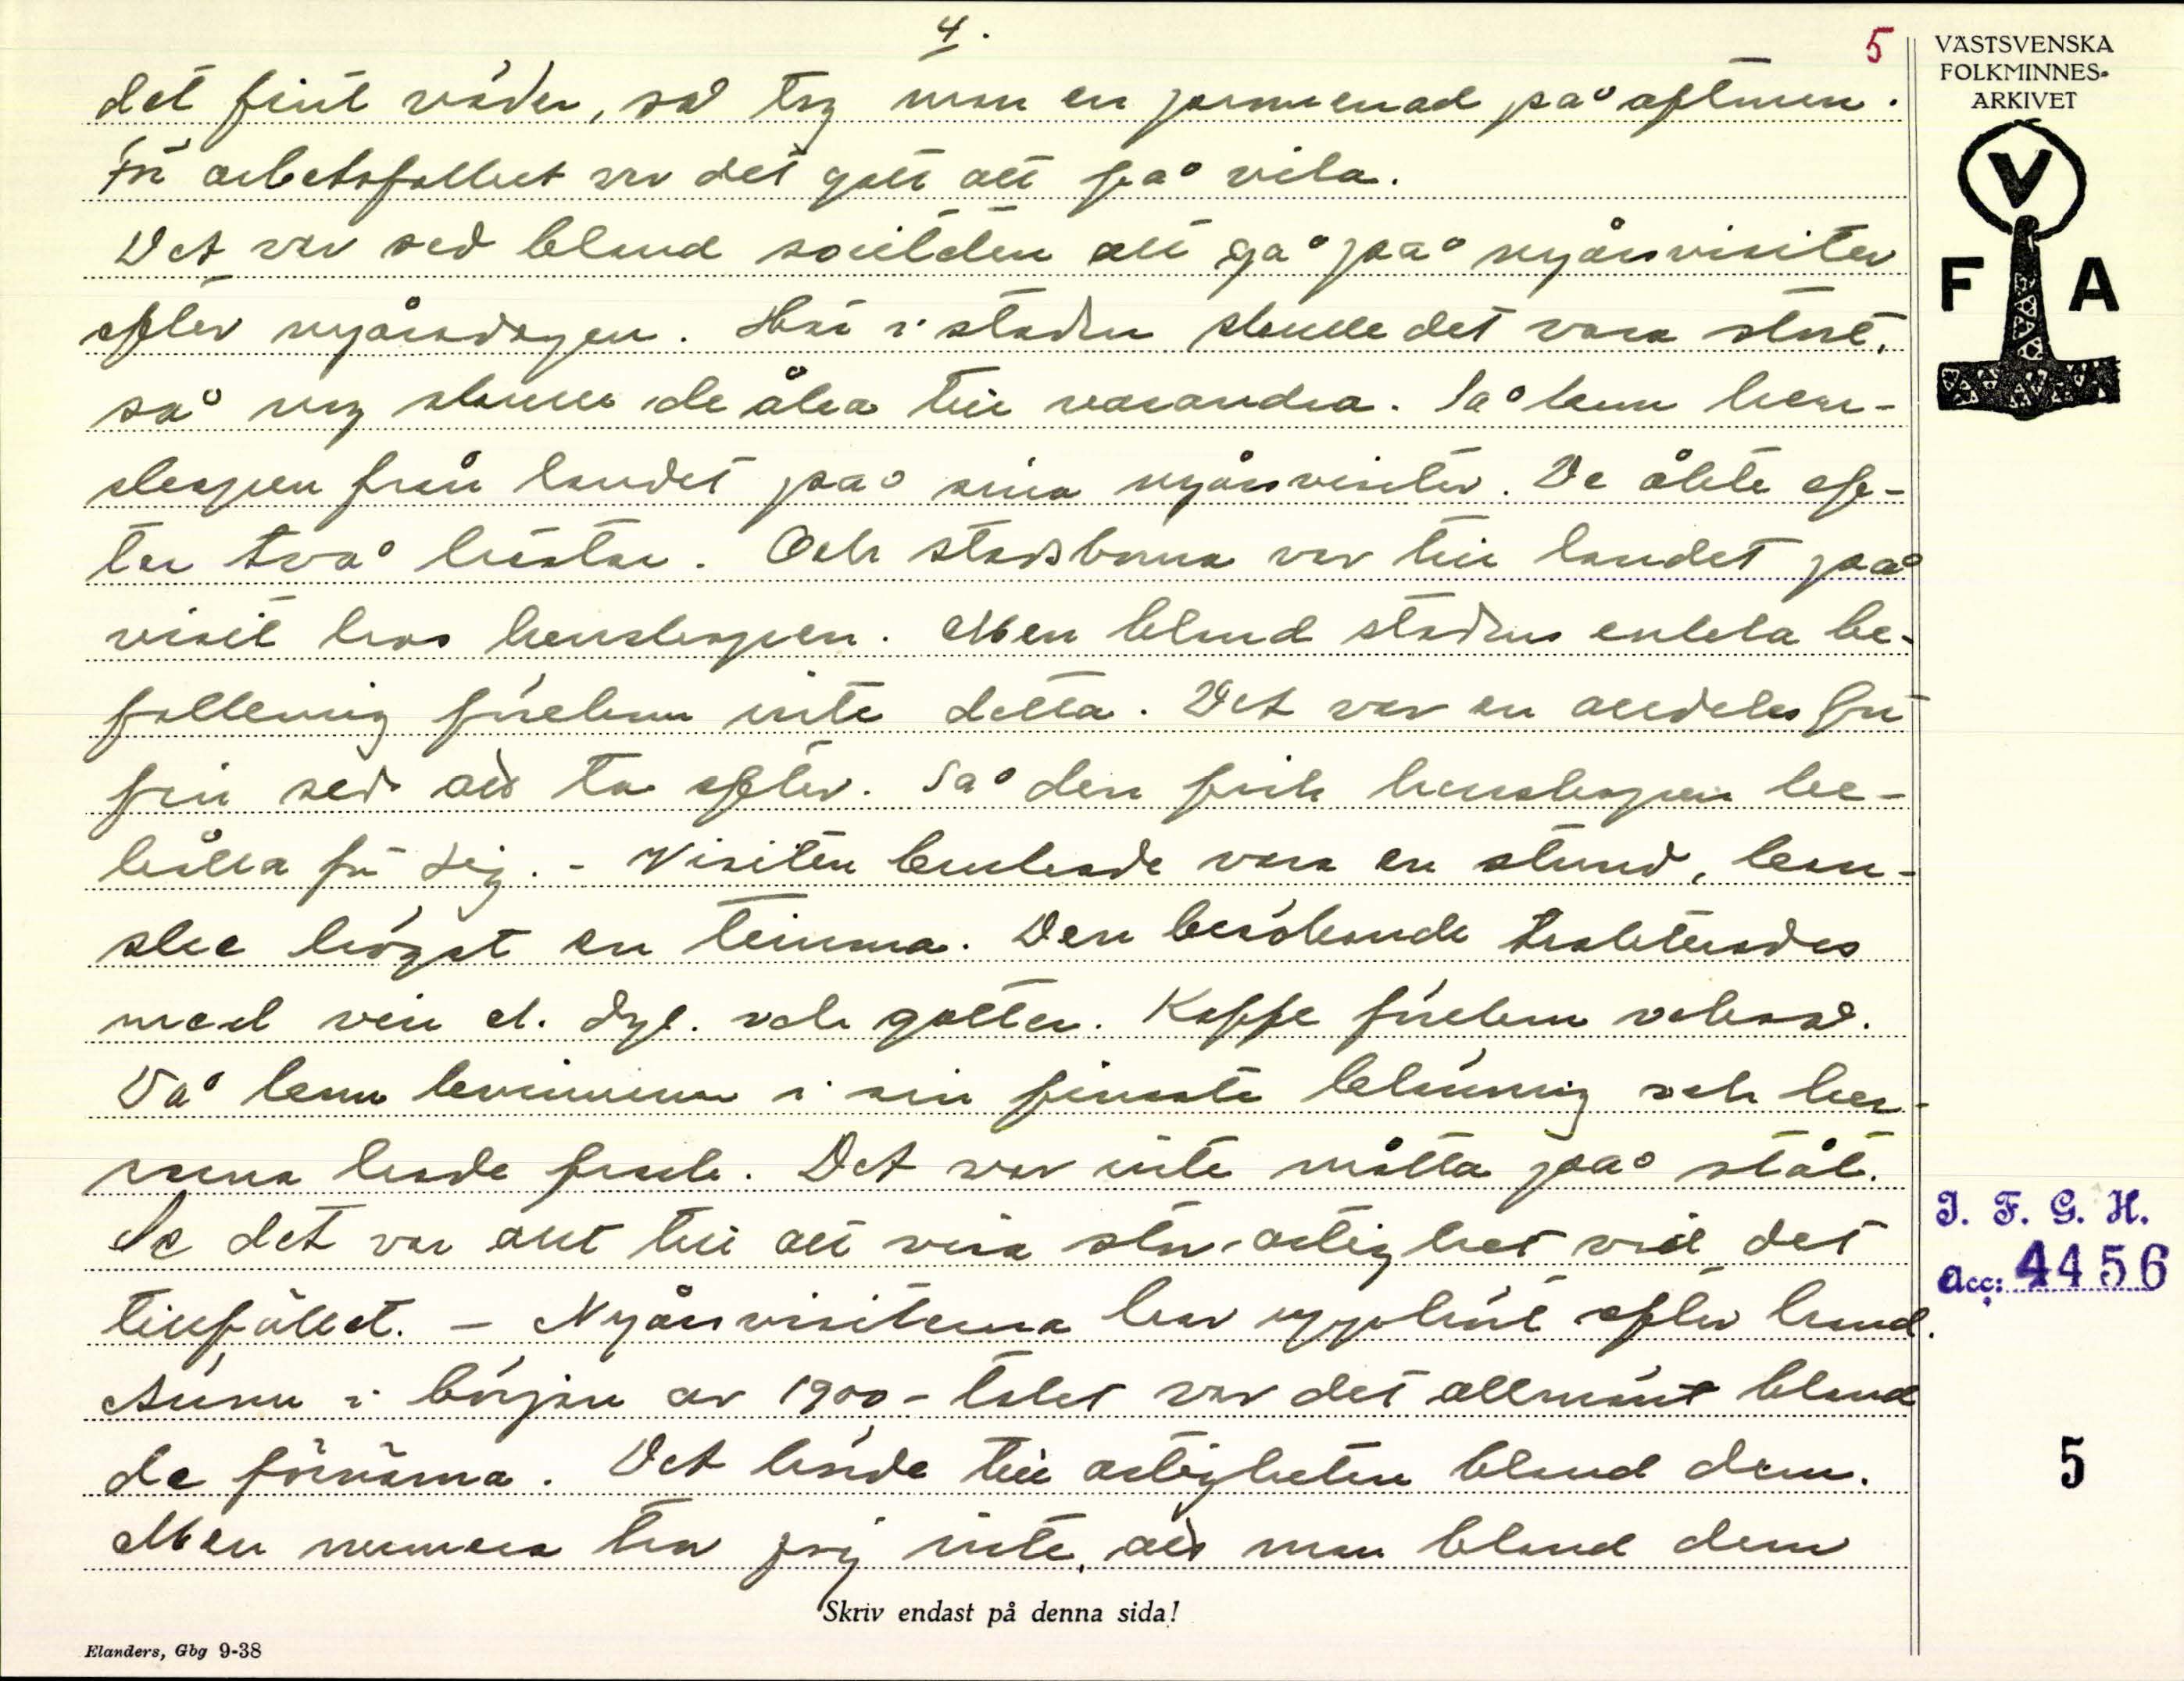 4.
5
det fint väder, så tog man en promenad på aftnen.
För arbetsfolket var det gott att få vila.
Det var sed bland societeten att gå på nyårsvisiter
efter nyårsdagen. Här i staden skulle det vara stort,
så nog skulle de åka till varandra. Så kom herr-
skapen från landet på sina nyårsvisiter. De åkte ef-
ter två hästar. Och stadsborna var till landet på
visit hos herrskapen. Men bland stadens enkla be-
folkning förekom inte detta. Det var en alldeles för
fin sed att ta efter. Så den fick herrskapen be-
hålla för sig. - Visiten brukade vara en stund, kan-
ske högst en timma. Den besökande trakterades
med vin el. dyl. och gotter. Kaffe förekom också.
Då kom kvinnorna i sin finaste klänning och her-
rarna hade frack. Det var inte måtta på ståt.
Se det var allt till att visa storartighet vid det
tillfället. - Nyårsvisiterna har upphört efter hand.
Ännu i början av 1900-talet var det allmänt bland
de förnäma. Det hörde till artigheten bland dem.
Men numera tror jag inte, att man bland dem
Skriv endast på denna sida!
Elanders, Gbg 9-38
VÄSTSVENSKA
FOLKMINNES-
ARKIVET
V
F A
I. F. G. H.
Acc: 4456
5